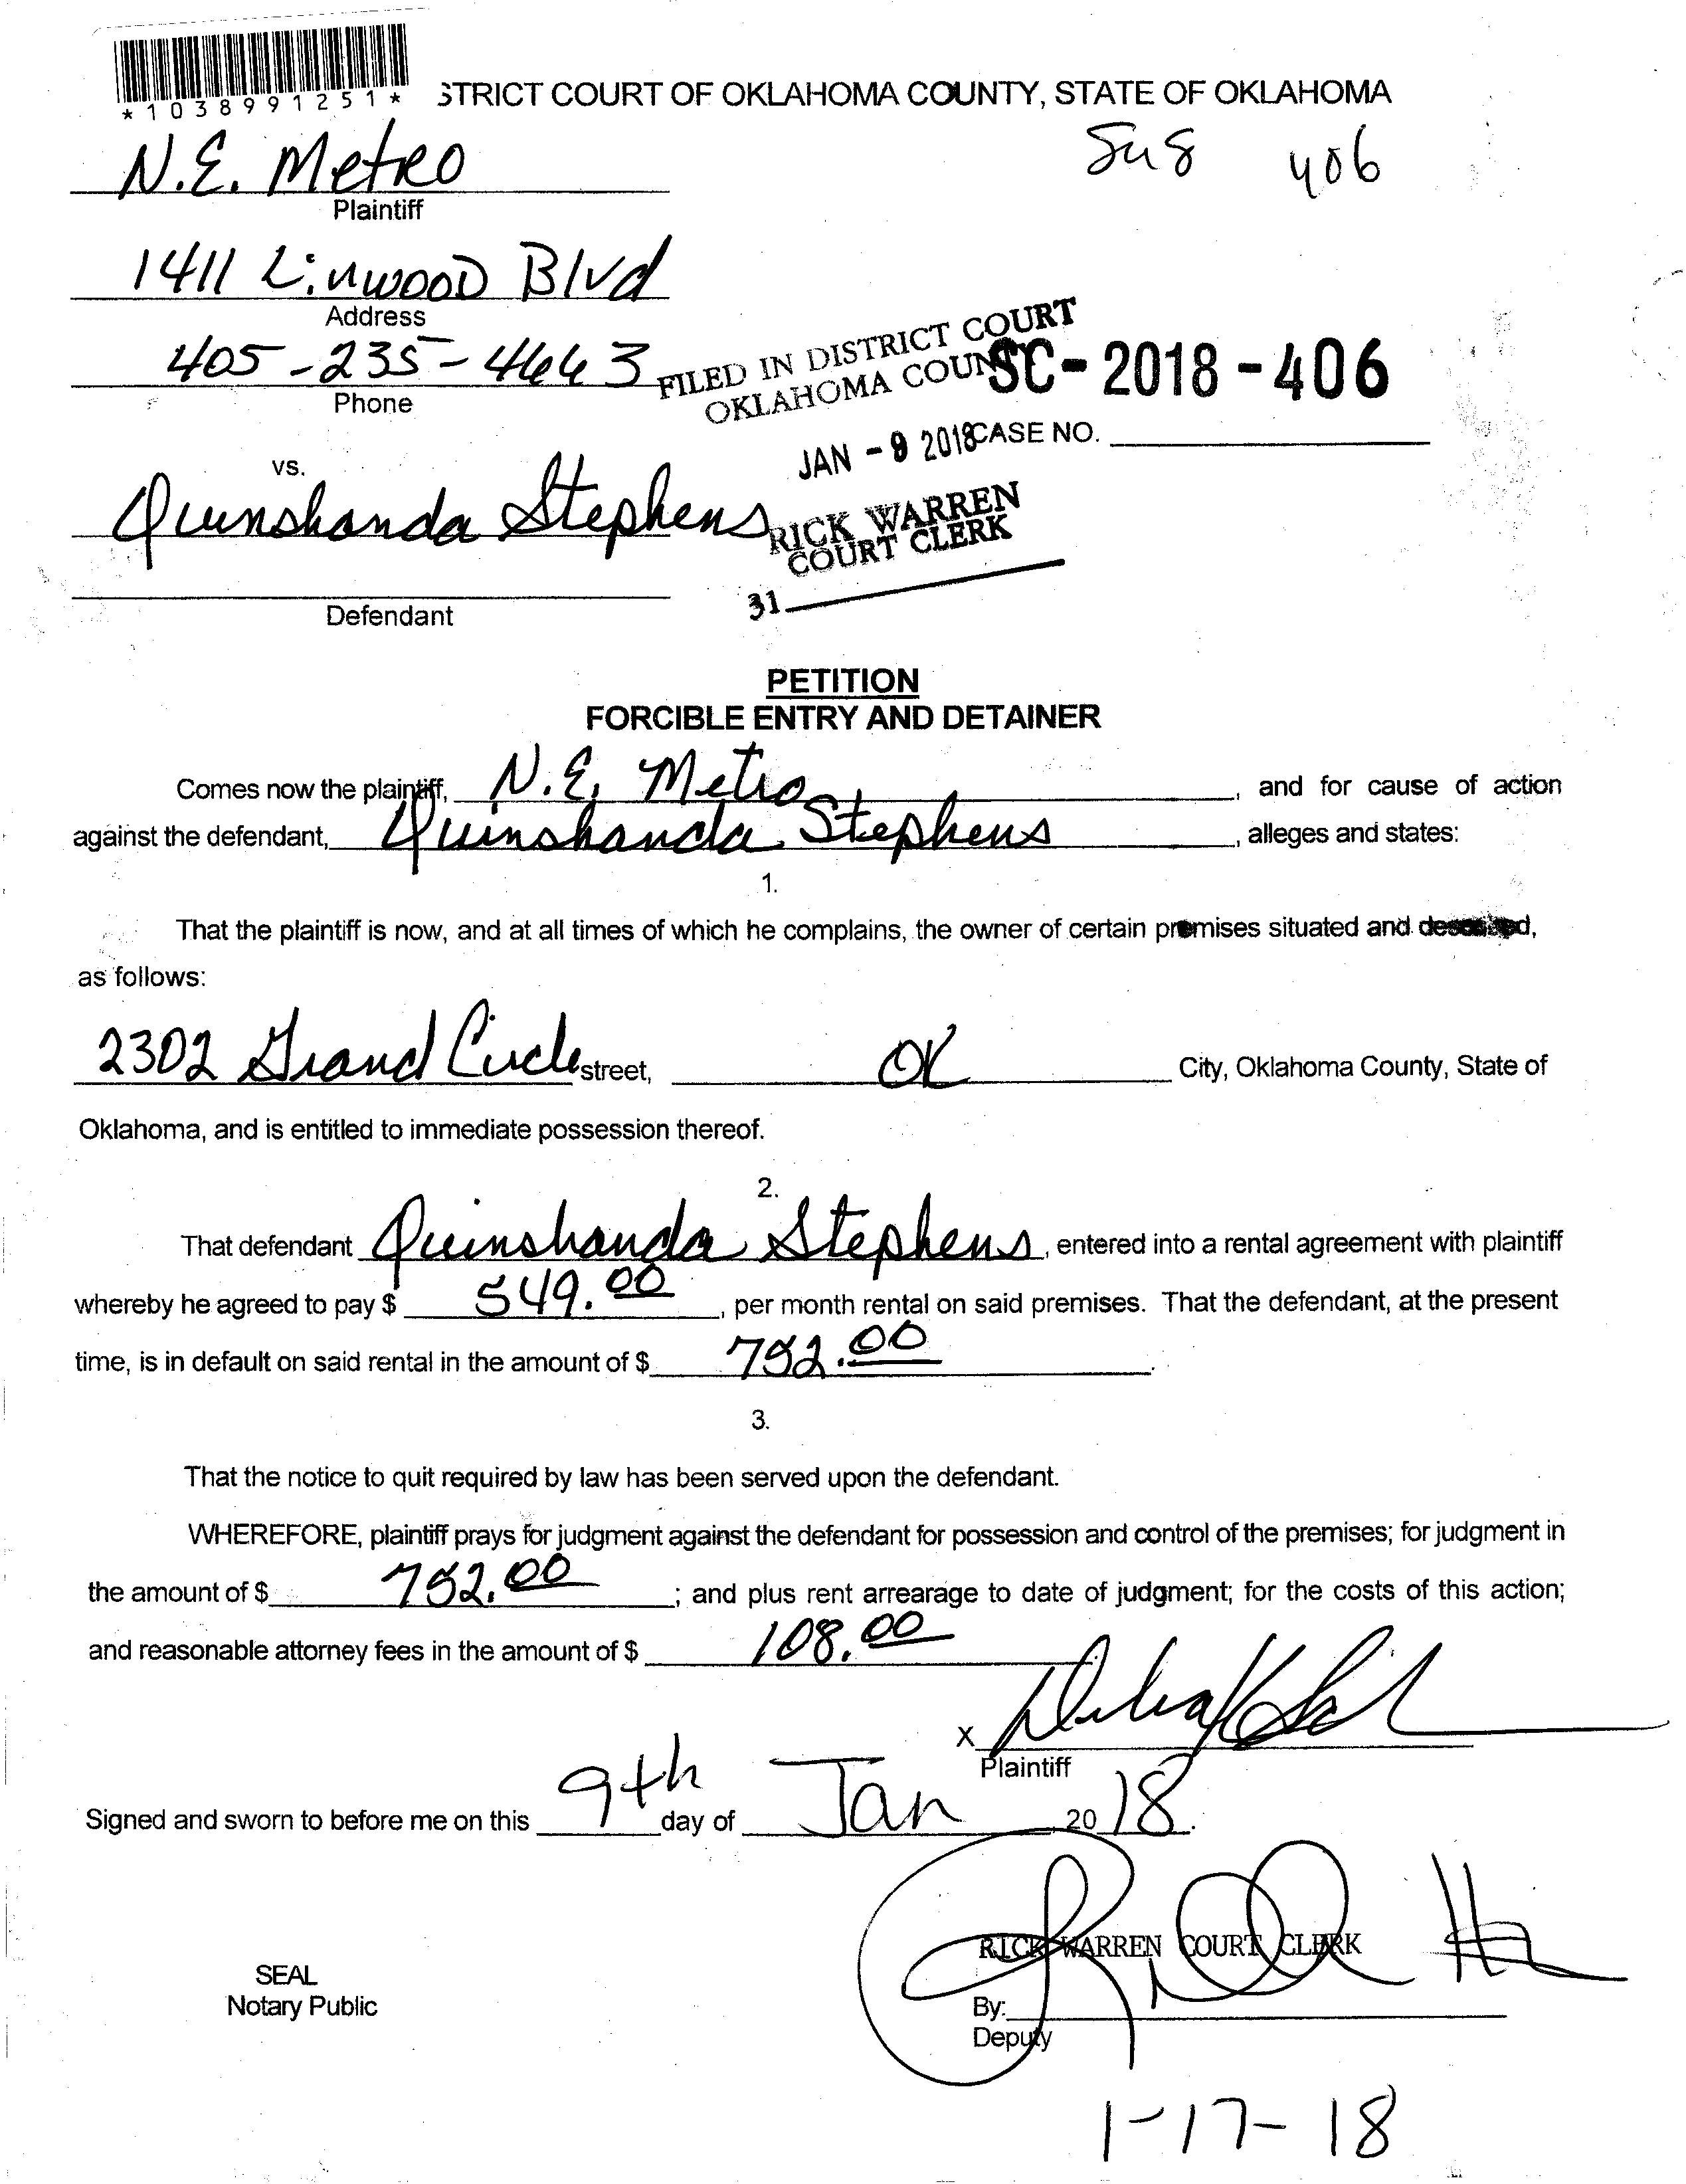 *1038991251*
STRICT COURT OF OKLAHOMA COUNTY, STATE OF OKLAHOMA
N.E. Metro
406
Plaintiff
1411 Linwood Blvd
Address
405-235-4443
Phone
FILED IN DISTRICT COURT
OKLAHOMA COUNTY
SC-2018-406
JAN - 9 2018
CASE NO.
vs.
Quinshanda Stephens
RICK WARREN
COURT CLERK
31
Defendant
PETITION
FORCIBLE ENTRY AND DETAINER
Comes now the plaintiff, N.E. Metro, and for cause of action
against the defendant, Quinshanda Stephens, alleges and states:
1.
That the plaintiff is now, and at all times of which he complains, the owner of certain premises situated and described,
as follows:
2302 Grand Circle street, OK City, Oklahoma County, State of
Oklahoma, and is entitled to immediate possession thereof.
2.
That defendant Quinshanda Stephens, entered into a rental agreement with plaintiff
whereby he agreed to pay $ 549.00, per month rental on said premises. That the defendant, at the present
time, is in default on said rental in the amount of $ 752.00.
3.
That the notice to quit required by law has been served upon the defendant.
WHEREFORE, plaintiff prays for judgment against the defendant for possession and control of the premises; for judgment in
the amount of $ 752.00; and plus rent arrearage to date of judgment; for the costs of this action;
and reasonable attorney fees in the amount of $ 108.00
X
Plaintiff
Signed and sworn to before me on this 9th day of Jan, 20 18.
RICK WARREN COURT CLERK
SEAL
Notary Public
By:
Deputy
1-17-18